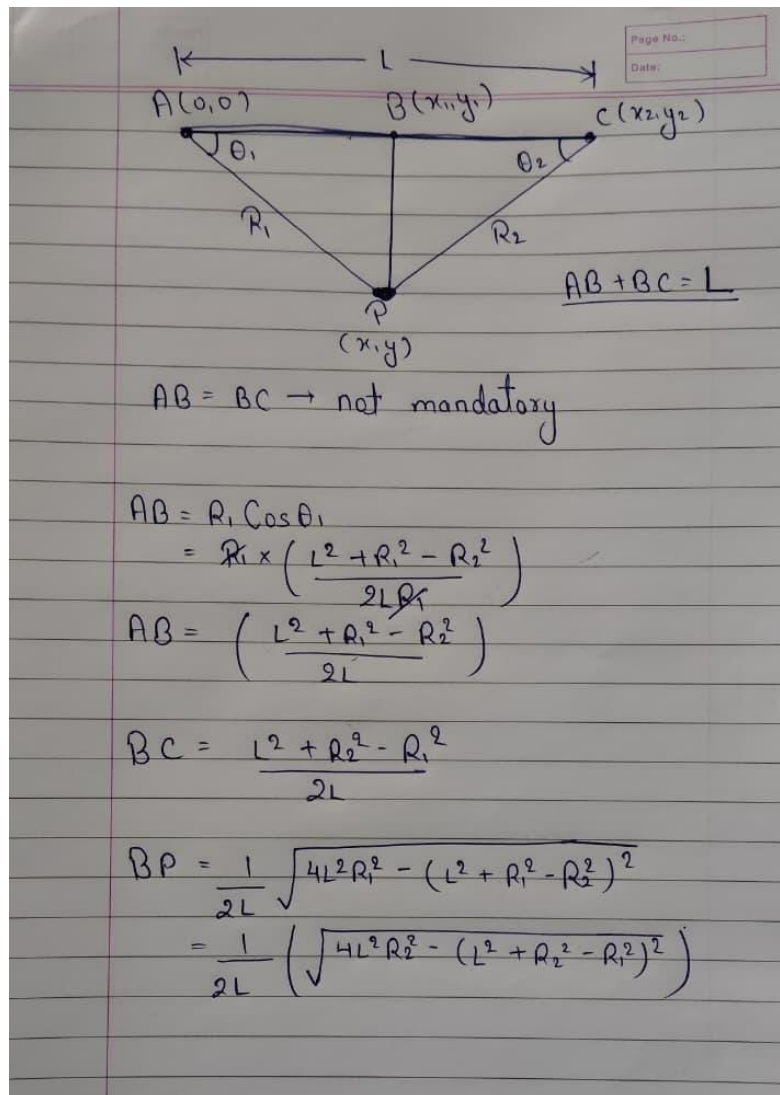 Page No.:
Date:
L
A(0,0) B(x₁,y₁) C(x₂,y₂)
θ₁ θ₂
R₁ R₂
AB + BC = L
P
(x,y)
AB = BC → not mandatory
AB = R₁ Cosθ₁
= R₁ × ( (L² + R₁² - R₂²) / 2LR₁ )
AB = ( (L² + R₁² - R₂²) / 2L )
BC = (L² + R₂² - R₁²) / 2L
BP = 1/2L √(4L²R₁² - (L² + R₁² - R₂²)²)
= 1/2L ( √(4L²R₂² - (L² + R₂² - R₁²)²) )